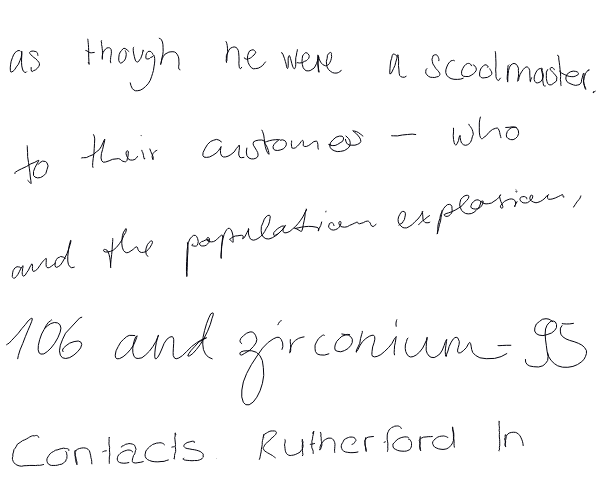 as though he were a scoolmaster.
to their customers – who
and the population explosion,
106 and zirconium-95
Contacts Rutherford In